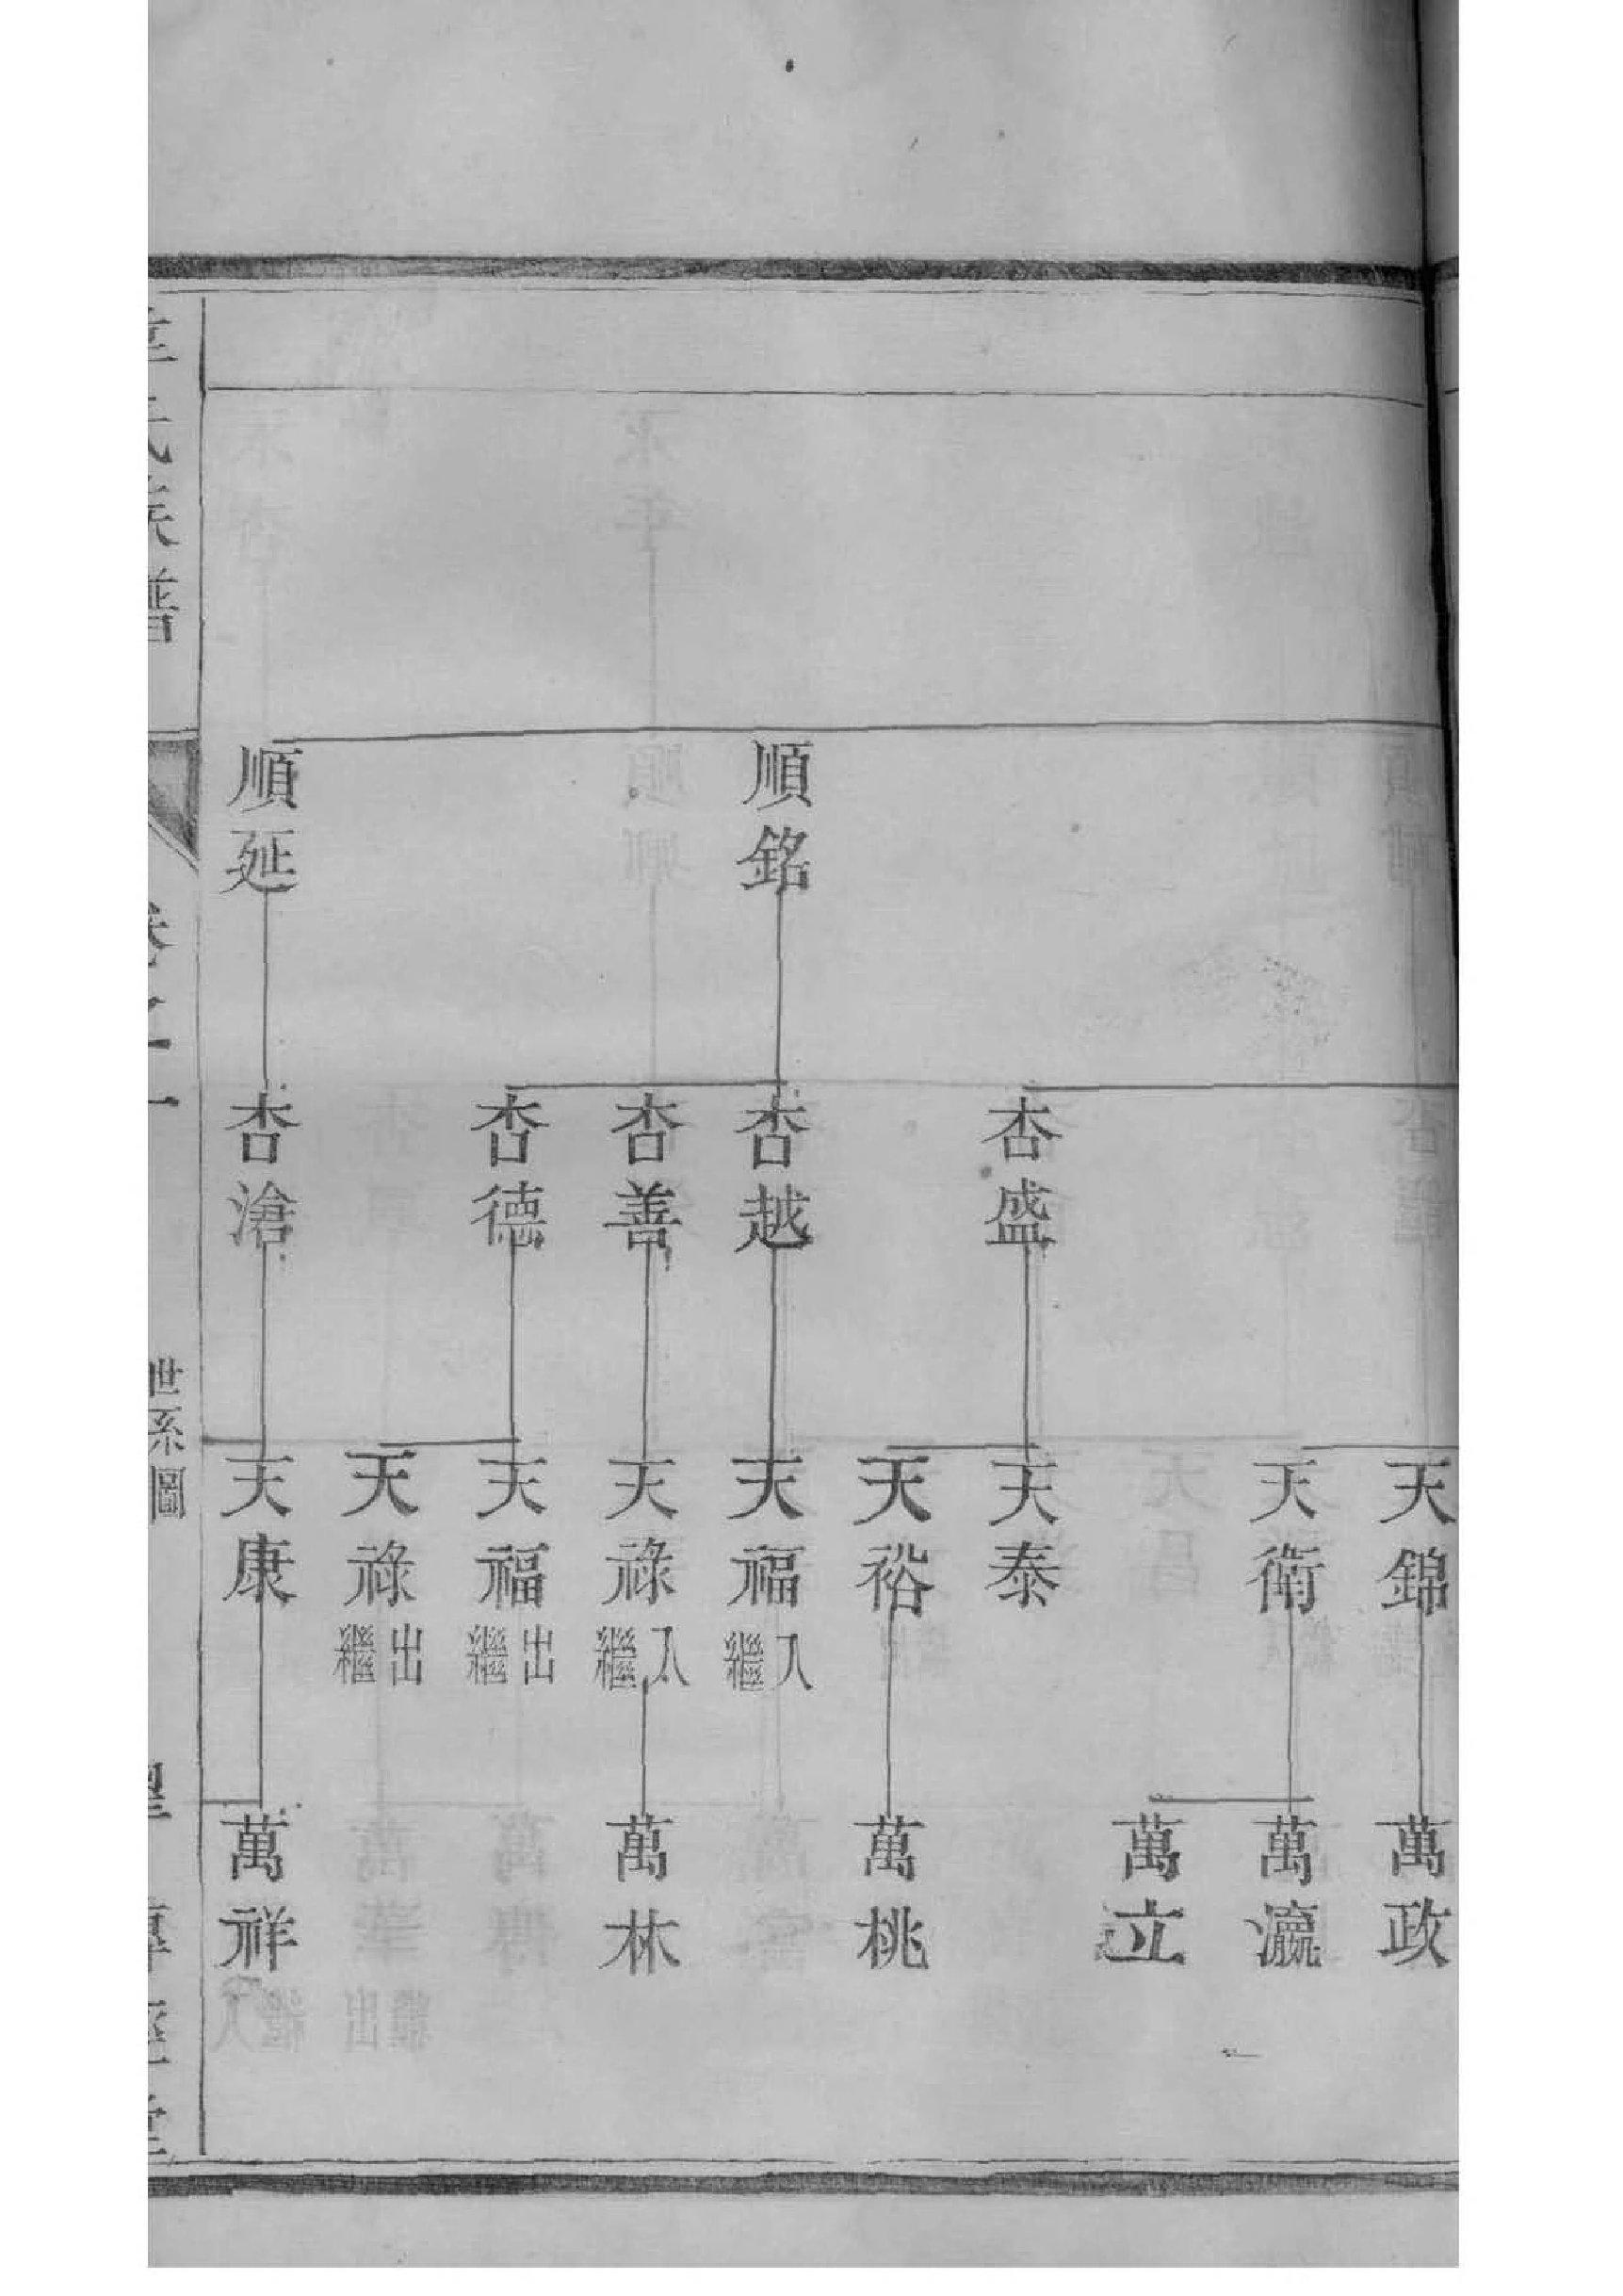 順銘
順延
杏盛
杏越
杏善
杏德
杏滄
天錦
天衛
天泰
天裕
天福 入繼
天祿 入繼
天福 出繼
天祿 出繼
天康
萬政
萬瀛
萬立
萬桃
萬林
萬祥
氏族譜
世系圖